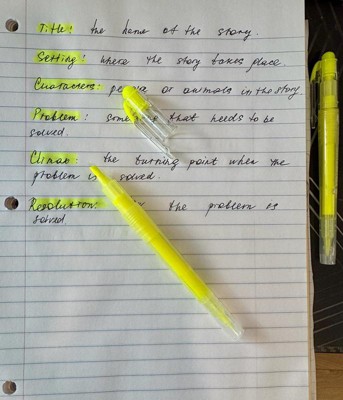 Title: the name of the story.
Setting: where the story takes place.
Characters: or animals in the story.
Problem: that needs to be
solved.
Climax: the turning point when the
problem is solved.
Resolution: the problem is
solved.